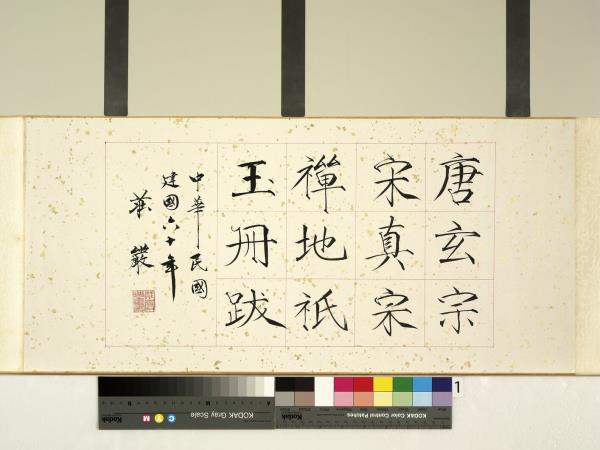 唐玄宗
宋真宗
禪地祇
玉冊跋
中華民國
建國六十年
莊嚴
KODAK Gray Scale
C Y M
Kodak
KODAK Color Control Patches
1